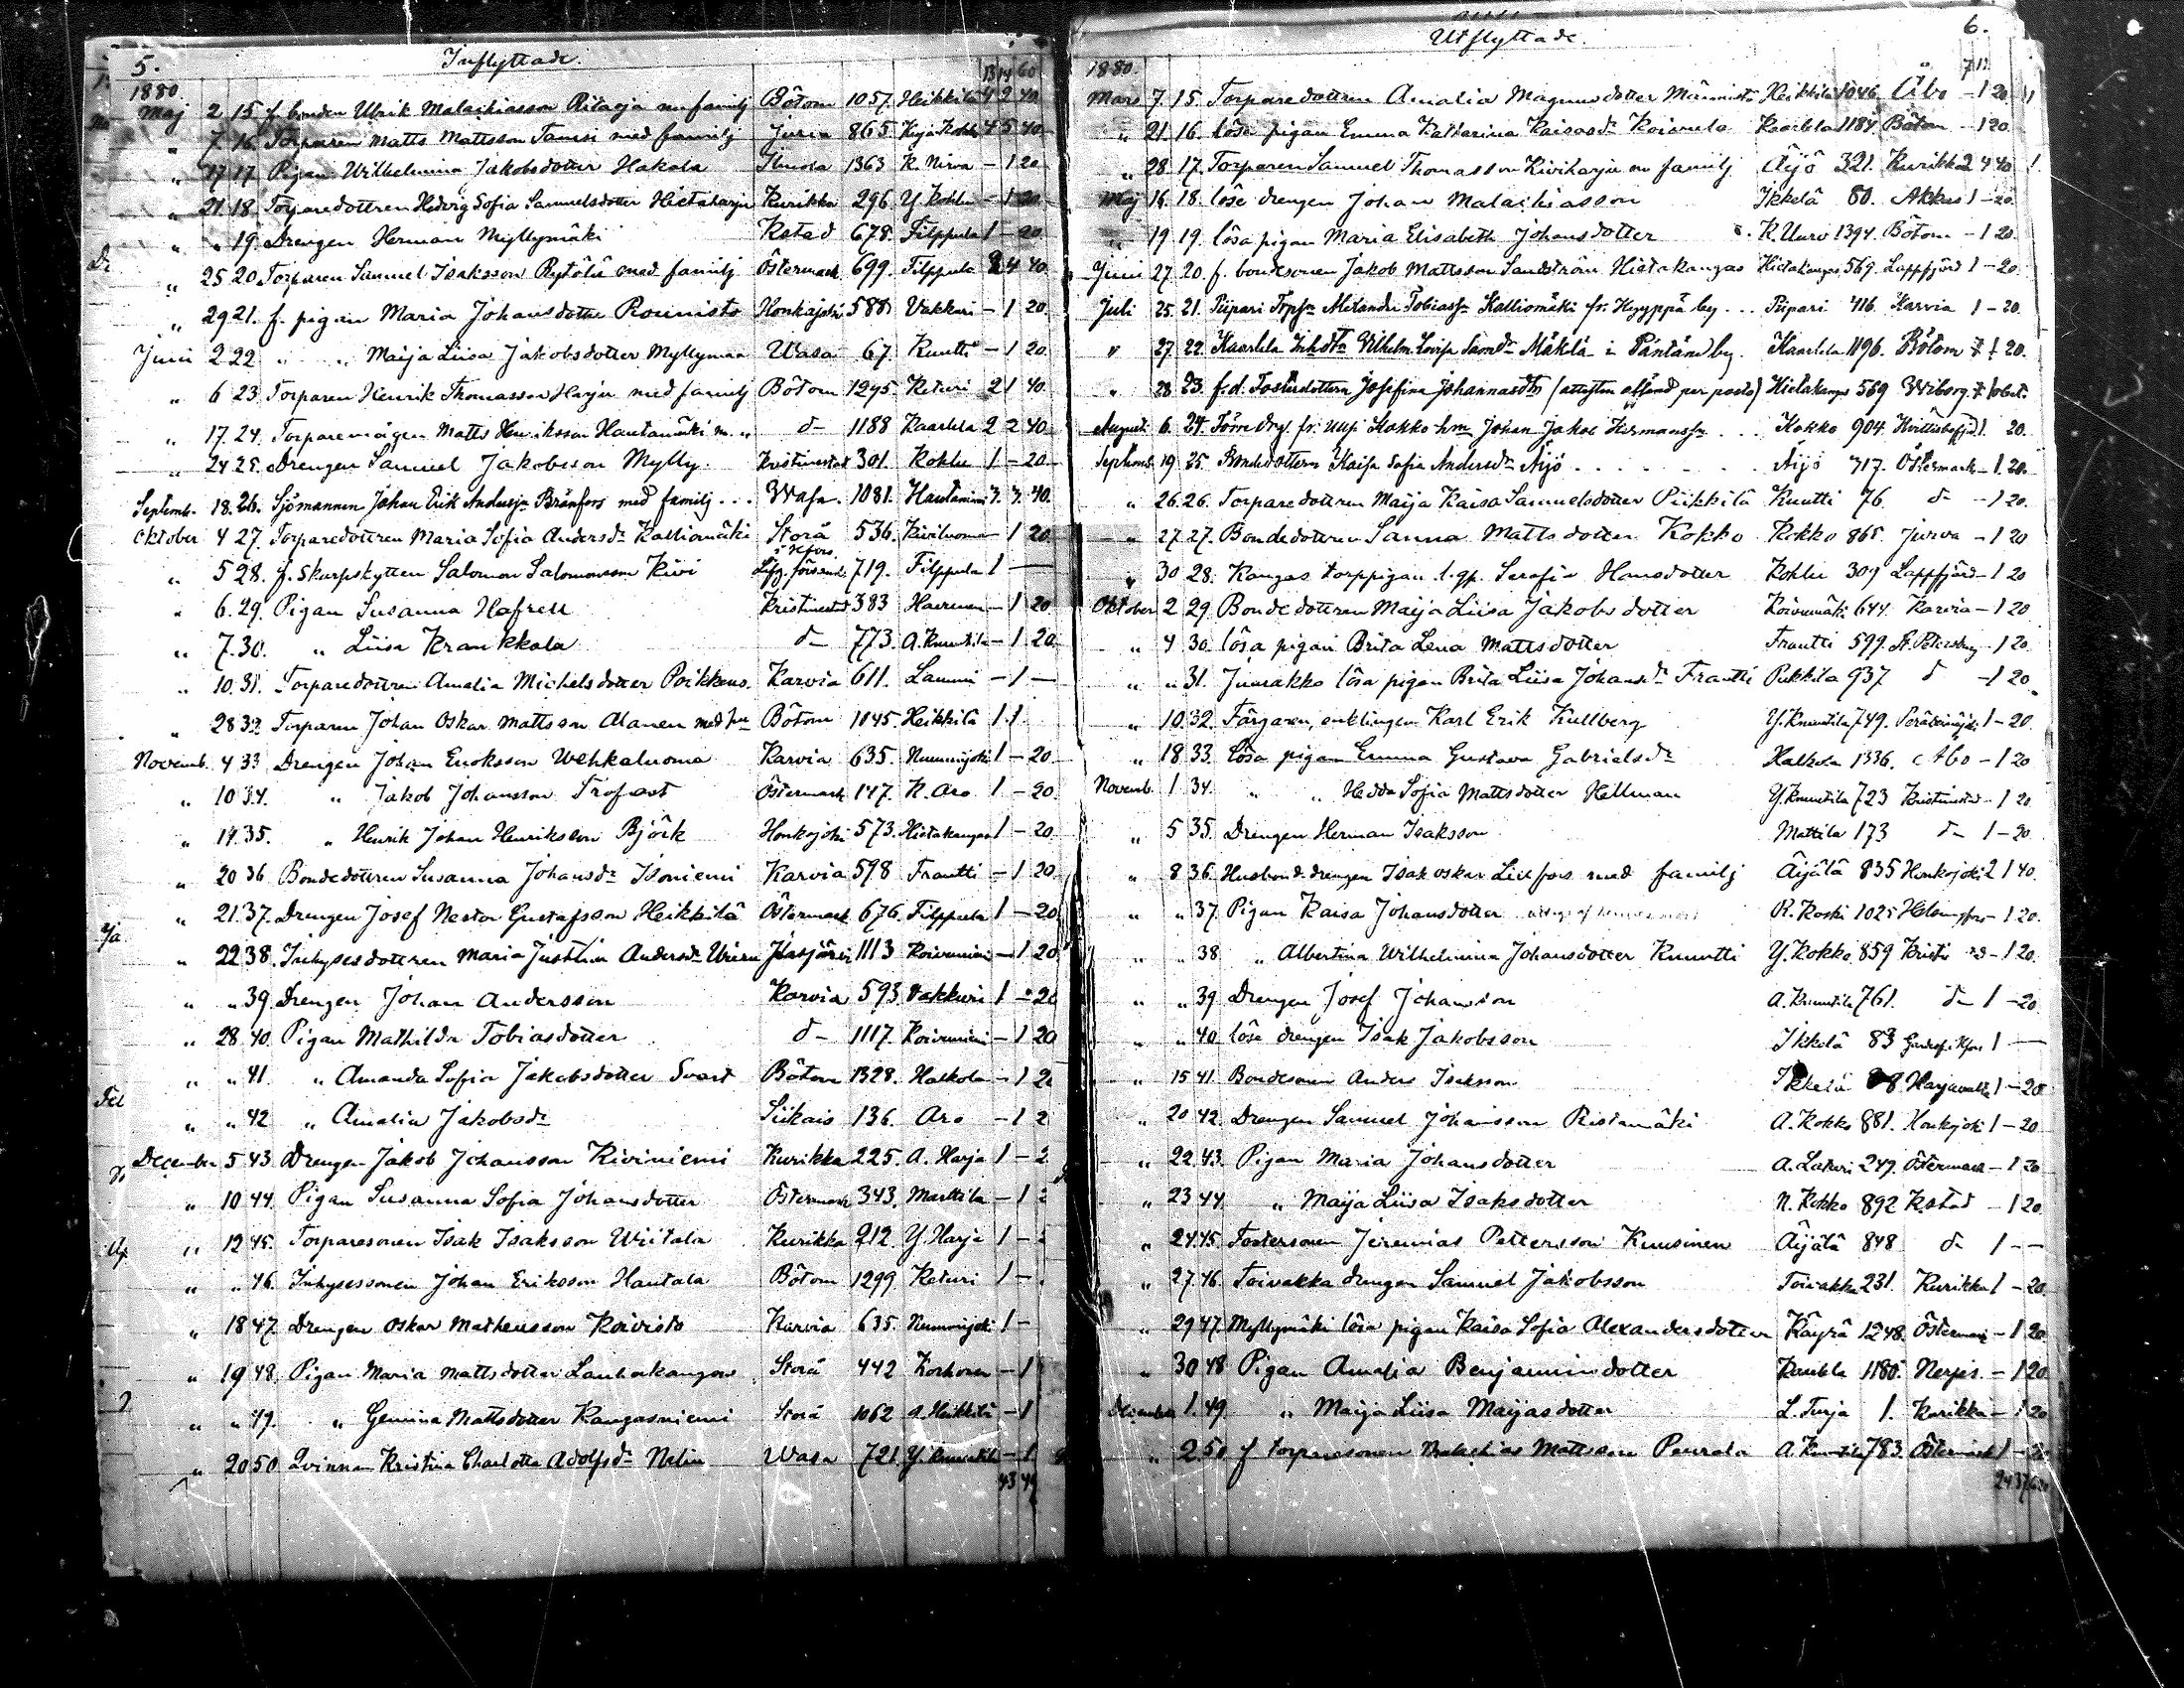 5.
Inflyttade
13 14 60
1880
Maj 2 15 f. bonden Ulrik Malachiasson Ritaoja m familj Bötom 1057. Heikkilä 4 2 40
" 7 16. Torparen Matts Mattsson Tamsi med familj Jurva 865 Kohlu 4 5 40
" 17 17 Pigan Wilhelmina Jakobsdotter Hakala Ilmola 1363 K. Nirva – 1 20
" 21 18. Torparedottren Hedvig Sofia Samuelsdotter Hietaharju Kurikka 296. Y. Kohlu – 1 20
" " 19. Drengen Herman Myllymäki Kstad 678. Filppula 1 – 20
" 25 20. Torparen Samuel Isaksson Rytölä med familj Östermark 699. Filppula 2 4 40
" 29 21. f. pigan Maria Johansdotter Rounisto Honkajoki 588 Vakkuri – 1 20
Juni 2 22 " " Maija Liisa Jakobsdotter Myllymaa Wasa 67. Kuutti – 1 20
" 6 23 Torparen Henrik Thomasson Harju med familj Bötom 1245 Keturi 2 1 40
" 17. 24. Matts Henriksson Hautamäki m. " d– 1188 Kaarlela 2 2 40
" 24 25. Drengen Samuel Jakobsson Mylly. Kristinestad 301. Kohlu 1 – 20
Septemb. 18. 26. Sjömannen Johan Erik Andersn Bränfors med familj . . . Wasa. 1081. 40.
Oktober 4 27. Torparedottren Maria Sofia Andersdr Kalliomäki Storå 536. Kiviluoma – 1 20
" 5 28. f. Skarpskytten Salomon Salomonsson Kivi 719. Filppula 1 –
" 6. 29. Pigan Susanna Hafren Kristinestad 383 Havunen – 1 20
" 7. 30. " Liisa Krankkala d– 773. A. Knuuttila – 1 20
" 10. 31. Torparedottren Amalia Michelsdotter Poikkeus. Karvia 611. Lammi – 1 –
" 28 32 Torparen Johan Oskar Mattsson Alanen med hu Bötom 1145 Heikkilä 1 1
Novemb. 4 33 Drengen Johan Eriksson Wehkaluoma Karvia 635. Nummijoki 1 – 20
" 10 34. " Jakob Johansson Trofast Östermark 147. K. Aro 1 – 20
" 14 35. " Henrik Johan Henriksson Björk Honkajoki 573. Hietakangas 1 – 20
" 20 36 Bondedottren Susanna Johansdr Isoniemi Karvia 598 Frantti – 1 20
" 21. 37. Drengen Josef Nestor Gustafsson Heikkilä Östermark 676. Filppula 1 – 20
" 22 38. Inhysesdottren Maria Justina Andersdr Jlasjärvi 1113 Koivuniemi – 1 20
" " 39. Drengen Johan Andersson Karvia 593. Vakkuri 1 – 20
" 28 40. Pigan Mathilda Tobiasdotter d– 1117. Koivuniemi – 1 20
" " 41. " Amanda Sofia Jakobsdotter Svart Bötom 1328. Halkola – 1 2
" " 42 " Amalia Jakobsdr Siikais 136. Aro – 1 2
December 5 43 Drengen Jakob Johansson Kiviniemi Kurikka 225. A. Harja 1 – 2
" 10 44. Pigan Susanna Sofia Johansdotter Östermark 343. Marttila – 1 2
" 12 45. Torparesonen Isak Isaksson Wiitala Kurikka 212. Y. Harja 1 –
" " 46. Inhysessonen Johan Eriksson Hautala Bötom 1299 Keturi 1 –
" 18 47. Drengen Oskar Matheusson Koivisto Karvia 635. Nummijoki 1 –
" 19 48. Pigan Maria Mattsdotter Lauhakangas Storå 442 Korhonen – 1
" " 49. " Gemina Mattsdotter Kangasniemi Storå 1062 A. Heikkilä – 1
" 20 50 Qvinnan Kristina Charlotta Adolfsdr Nelin Wasa 721. Y. Knuuttila – 1
43 49
6.
Utflyttade.
1880.
Mars 7. 15. Torparedottren Amalia Magnusdotter Männistö Heikkilä 1046. Åbo – 1 20
" 21. 16. lösa pigan Emma Katharina Kaisasdr Koivula Kaarlela 1184. Bötom – 1 20.
" 28 17. Torparen Samuel Thomasson Kiviharju m familj Äijö 321. Kurikka 2 4 40
Maj 16. 18. löse drengen Johan Malachiasson Ikkelä 80. Akkas 1 – 20.
" 19 19. lösa pigan Maria Elisabeth Johansdotter K. Unro 1394. Bötom – 1 20.
Juni 27 20. f. bondesonen Jakob Mattsson Sandström Hietakangas Hietakangas 569. Lappfjärd 1 – 20.
Juli 25. 21. Piipari Alexander Tobiasn Kalliomäki fr. Hyyppä by . . . Piipari 416. Karvia 1 – 20.
" 27 22. Kaarlela Vilhelm. Lovisa Samdr Mäkelä i Päntäne by. Kaarlela 1196. Bötom 1 20.
" 28 23. f.d. Fosterdottern Josefina Johannasdtr (attesten afsänd per posto) Hietakangas 569 Wiborg
Augusti 6. 24. fr. Kokko hm Johan Jakob Hermanssn . . . Kokko 904. 1. 20.
Septemb. 19 25. Bondedottern Kaisa Sofia Andersdr Äijö . . . . . . . Äijö 717. Östermark – 1. 20.
" 26. 26. Torparedottren Maija Kaisa Samuelsdotter Piikkilä Kuutti 76 d– – 1 20.
" 27 27. Bondedottren Sanna Mattsdotter Kokko Kokko 865. Jurva – 1 20
" 30 28. Kangas torppigan Serafia Hansdotter Kohlu 309 Lappfjärd – 1 20
Oktober 2 29. Bondedottren Maija Liisa Jakobsdotter Koivumäki 644. Karvia – 1 20
" 4 30. lösa pigan Brita Lena Mattsdotter Frantti 599. St. Petersburg – 1 20.
" " 31. Juurakko lösa pigan Brita Liisa Johansdr Frantti Pukkila 937 d – 1 20.
" 10. 32. Färgaren, enklingen Karl Erik Kullberg Y. Knuuttila 749. Peräseinäjoki 1 – 20.
" 18 33. lösa pigan Emma Gustava Gabrielsdr Halkola 1336. Åbo – 1 20
Novemb. 1 34. " " Hedda Sofia Mattsdotter Hellman Y. Knuuttila 723 Kristinestad – 1 20
" 5 35. Drengen Herman Isaksson Mattila 173 d– 1 – 20.
" 8 36. Husbonddrengen Isak Oskar Lillfors med familj Äijälä 835 Honkajoki 2 1 40.
" " 37. Pigan Kaisa Johansdotter R. Koski 1025 Helsingfors – 1 20.
" " 38 " Albertina Wilhelmina Johansdotter Knuutti Y. Kokko 859 – 1 20.
" " 39 Drengen Josef Johansson A. Knuuttila 761. d– 1 – 20
" " 40 löse drengen Isak Jakobsson Ikkelä 83 1 –
" 15 41 Bondesonen Anders Isaksson Ikkelä 88 Harjavalta 1 – 20
" 20 42. Drengen Samuel Johansson Ristamäki A. Kokko 881. Honkajoki 1 – 20
" 22. 43. Pigan Maria Johansdotter A. Laturi 249. Östermark – 1 20
" 23 44. " Maija Liisa Isaksdotter N. Kokko 892 Kstad – 1 20.
" 24. 45. Fostersonen Jeremias Pettersson Kuusinen Äijälä 848 d– 1 – –
" 27 46. Toivakka drengen Samuel Jakobsson Toivakka 231. Kurikka 1 – 20.
" 29 47. Myllymäki lösa pigan Kaisa Sofia Alexandersdotter Käyrä 1248. Östermark – 1 20
" 30 48 Pigan Amalia Benjaminsdotter Kaarlela 1180. Nerpes. – 1 20
December 1. 49 " Maija Liisa Maijasdotter L. Turja 1. Kurikka – 1 20
" 2. 50 f torparesonen Malachias Mattsson Peurala A. Knuuttila 783. Östermark 1 – 20
24 37